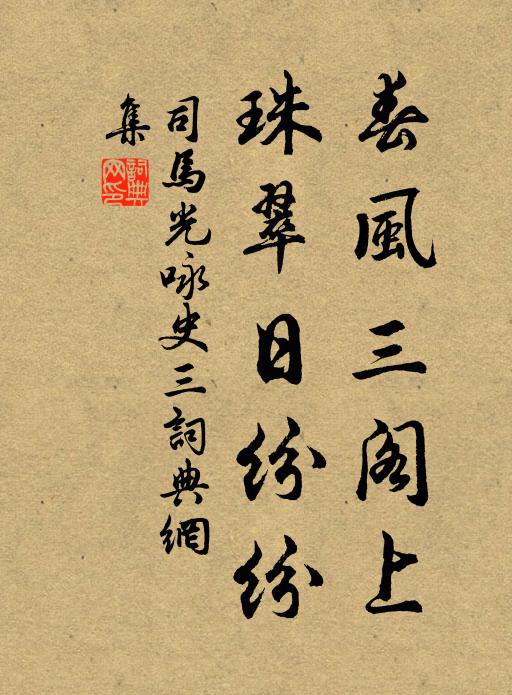 春風三閣上
珠翠日紛紛
司馬光咏史三詞典網
集
詞典
网印